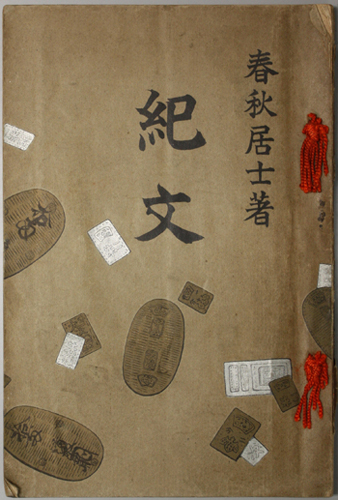 春秋居士著
紀文